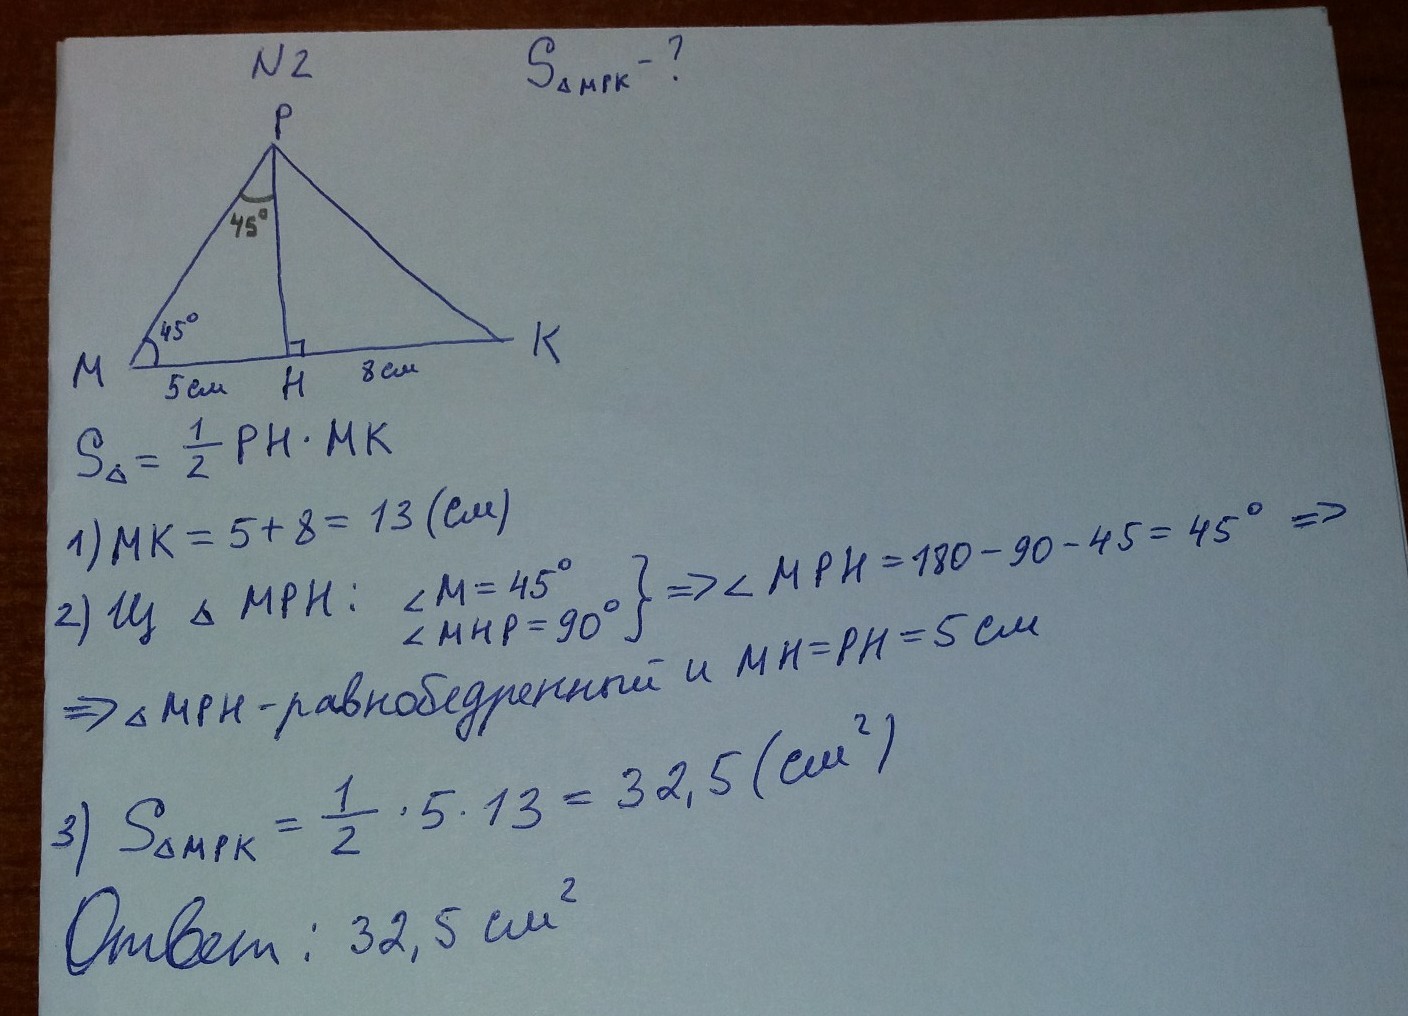 N2
S△MPK - ?
P
45°
45°
M
5см
H
8см
K
S△ = 1/2 PH · MK
1) MK = 5 + 8 = 13 (см)
2) Из △ MPH: ∠M = 45° ∠MHP = 90° } => ∠MPH = 180 - 90 - 45 = 45° =>
=> △MPH - равнобедренный и MH = PH = 5 см
3) S△MPK = 1/2 · 5 · 13 = 32,5 (см²)
Ответ: 32,5 см²